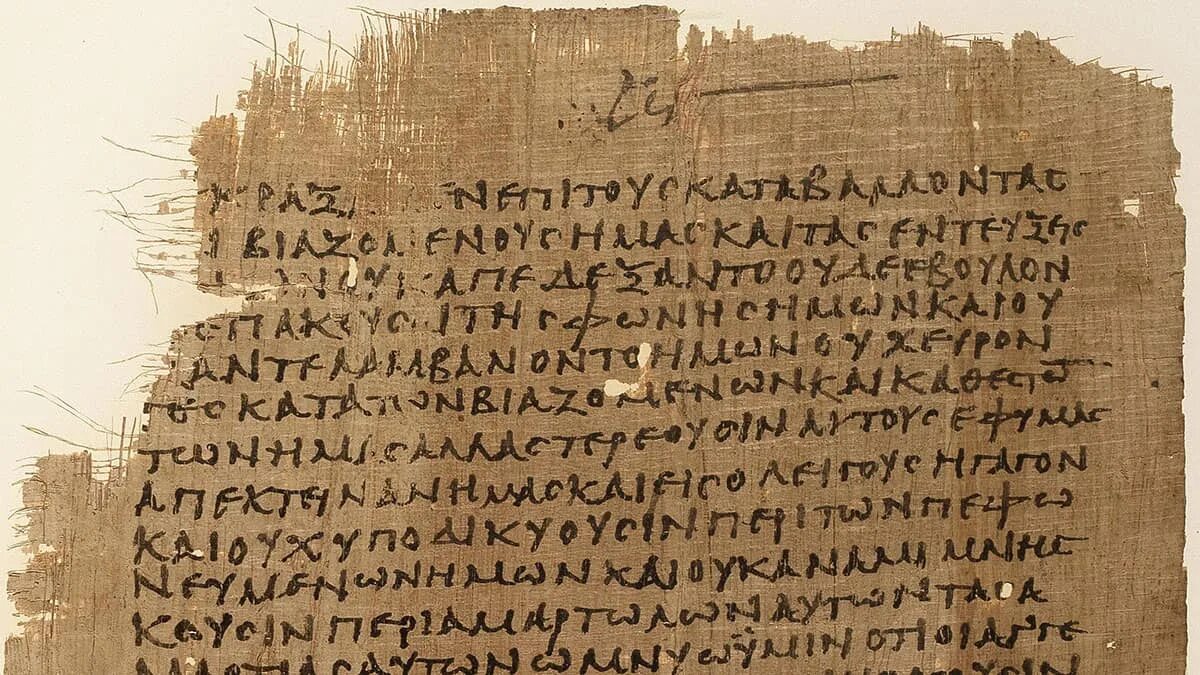 ΚΡΑΞ ΕΝΕΠΙΤΟΥΣΚΑΤΑΒΑΛΛΟΝΤΑΣ
ΒΙΑΖΟΜΕΝΟΥΣΗΜΑΣΚΑΙΤΑΣΕΝΤΕΥΞΕΙΣ
ΑΠΕΔΕΞΑΝΤΟΟΥΔΕΕΒΟΥΛΟΝ
ΕΠΑΚΟΥΣΑΙΤΗΣΦΩΝΗΣΗΜΩΝΚΑΙΟΥ
ΑΝΤΕΛΑΜΒΑΝΟΝΤΟΗΜΩΝΟΥΧΕΥΡΟΝ
ΤΕΣΚΑΤΑΤΩΝΒΙΑΖΟΜΕΝΩΝΚΑΙΚΑΘΕΣΤΩ
ΤΩΝΗΜΑΣΑΛΛΑΣΤΕΡΕΟΥΣΙΝΑΥΤΟΥΣΕΦΥΜΑΣ
ΑΠΕΚΤΕΙΝΑΝΗΜΑΣΚΑΙΕΙΣΟΛΕΙΓΟΥΣΗΓΑΓΟΝ
ΚΑΙΟΥΧΥΠΟΔΙΚΥΟΥΣΙΝΠΕΡΙΤΩΝΠΕΦΩ
ΝΕΥΜΕΝΩΝΗΜΩΝΚΑΙΟΥΚΑΝΑΜΙΜΝΗΣ
ΚΟΥΣΙΝΠΕΡΙΑΜΑΡΤΩΛΩΝΑΥΤΩΝΤΑΣΑ
ΜΑΡΤΙΑΣΑΥΤΩΝΩΜΝΥΩΫΜΙΝΟΤΙΟΙΑΓΓΕ